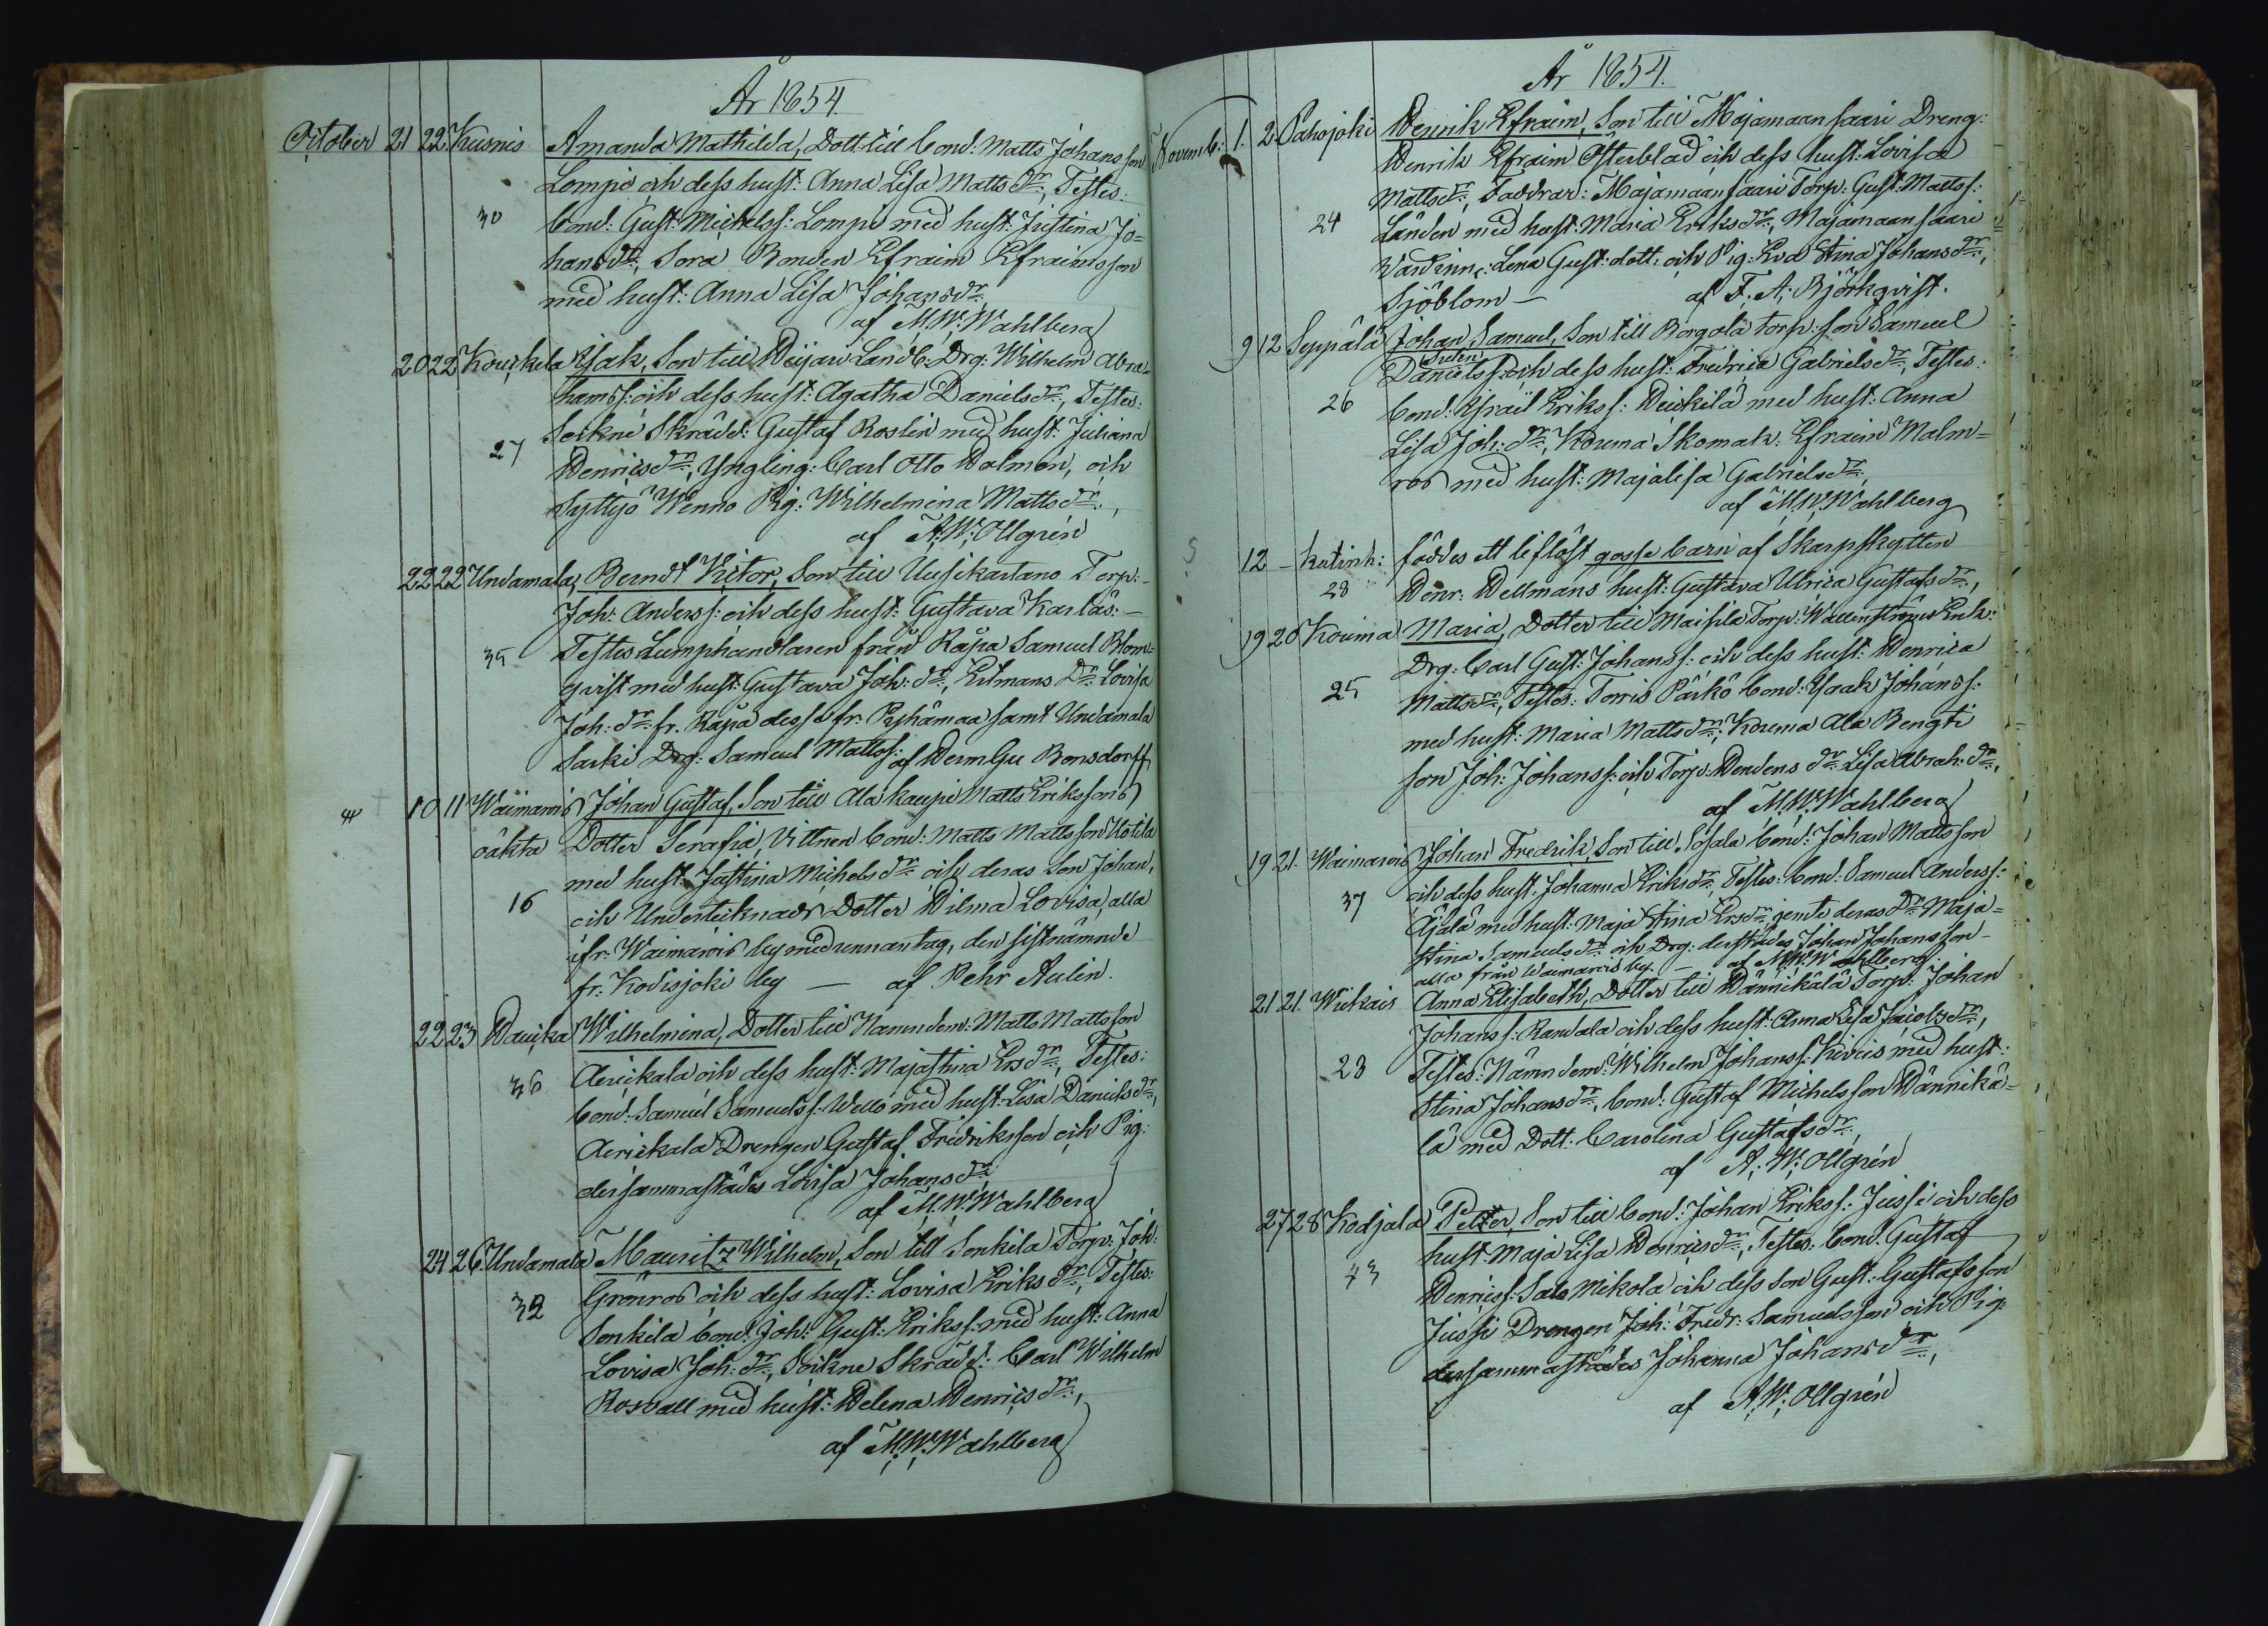 År 1854.
October 21 22 Kusnis Amanda Mathilda, Dott. till bond: Matts Johansson
Lompi och dess hust: Anna Lisa Mattsdr, Testes:
30 bond: Gust: Michelss: Lompi med hust: Justina Jo=
hansdr, Sora Bonden Efraim Efraimsson
med hust: Anna Lisa Johansdr,
af M. W. Wahlberg
20 22 Kouskela Isak, Son till Weijari Landb: Drg: Wilhelm Abra=
hamss: och dess hust: Agatha Danielsdr, Testes:
27 Sockne Skrädd: Gustaf Roslin med hust: Juliana
Henricsdr, Yngling: Carl Otto Dalmén, och
Syttyö Wenno Pig: Wilhelmina Mattsdr,
af A. W. Ollgrén
22 22 Undamala, Berndt Victor, Son till Uusikartano Torp:
Joh: Anderss: och dess hust: Gustava Karlas:
35 Testes Lumphandlaren från Råpa Samuel Blom=
qvist med hust: Gustava Joh: dr, Ritmans Dr: Lovisa
Joh: dr: fr. Råpa dessa fr: Pyhämaa samt Undamala
Sarki Drg: Samuel Mattss: af Herm Gu Bonsdorff
10 11 Waimarois Johan Gustaf, Son till Ala kaupi Matts Erikssons
oäkta Dotter Serafia, Vittnen bond: Matts Mattsson Uotila
med hust: Justina Michelsdr och deras Son Johan,
16 och Undertecknads Dotter Hilma Lovisa, alla
ifr: Waimarois by med unnantag, den sistnämnde
fr: Kodisjoki by — af Pehr Aulin.
22 23 Hauska Wilhelmina, Dotter till Nämndem: Matts Mattsson
36 Aerickala och dess hust: Majastina Ersdr, Testes:
bond: Samuel Samuelss: Wello med hust: Lisa Danielsdr,
Aerickala Drengen Gustaf Fredriksson och Pig:
dersammastädes Lovisa Johansdr
af M. W. Wahlberg
24 26 Undamala Mauritz Wilhelm, Son till Sonkila Torp: Joh:
32 Grönros och dess hust: Lovisa Eriksdr, Testes:
Sonkila bond: Joh: Gust: Erikss: med hust: Anna
Lovisa Joh: dr, Sockne Skrädd: Carl Wilhelm
Roswall med hust: Helena Henricsdr,
af M. W. Wahlberg
År 1854.
Novemb: 1. 2 Pahojoki Henrik Efraim, Son till Majamaansaari Dreng:
Henrik Efraim Österblad och dess hust: Lovisa
Mattsdr, Faddrar: Majamaansaari Torp: Gust: Mattss:
24 Landen med hust: Maria Eriksdr, Majamaansaari
Värdinn: Lena Gust: dott: och Pig: Eva Stina Johansdr,
Sjöblom — af F. A. Björkqvist.
9 12 Seppälä Johan Samuel, Son till Borgola torp: son Samuel
Danielss: och dess hust: Fredrica Gabrielsdr, Testes:
26 bond: Israil Erikss: Heickilä med hust: Anna
Lisa Joh: dr, Kouma Skomak: Efraim Malm=
ros med hust: Majalisa Gabrielsdr,
af M. W. Wahlberg
12 — föddes ett liflöst gosse barn af Skarpskytten
28 Henr: Hellmans hust: Gustava Ulrica Gustafsdr,
19 20 Kouma Maria, Dotter till Maisila Torp: Wallenströms Enk:
Drg: Carl Gust: Johanss: och dess hust: Henrica
25 Mattsdr, Testes: Torris Pärkö bond: Isaak Johanss:
med hust: Maria Mattsdr, Kouma Ala Bengti
son Joh: Johanss: och Torp: Hendens dr Lisa Abrah: dr,
af M. W. Wahlberg
19 21. Waimarois Johan Fredrik, Son till Sosala bond: Johan Mattsson
37 och dess hust. Johanna Eriksdr, Testes: bond: Samuel Anderss:
Äjälä med hust: Maja Stina Ersdr jemte deras Dr Maja=
stina Samuelsdr och Drg: derstädes Johan Johansson —
alla från Waimarois by. — af M. W. Wahlberg
21 21. Wiekais Anna Elisabeth, Dotter till Hännikälä Torp: Johan
Johanss: Randala och dess hust: Anna Lisa Jacobsdr,
28 Testes: Nämndem: Wilhelm Johanss: Kiveis med hust:
Stina Johansdr, bond: Gustaf Michelsson Hännikä=
lä med Dott: Carolina Gustafsdr,
af A. W. Ollgrén
27 28 Kodjala Petter, Son till bond: Johan Erikss: Jussi och dess
hust: Maja Lisa Henricsdr, Testes: bond. Gustaf
43 Henricss: Salo Mikola och dess son Gust: Gustafsson
Jussi Drengen Joh: Fredr: Samuelsson och Pig:
dersammastädes Johanna Johansdr,
af A. W. Ollgrén